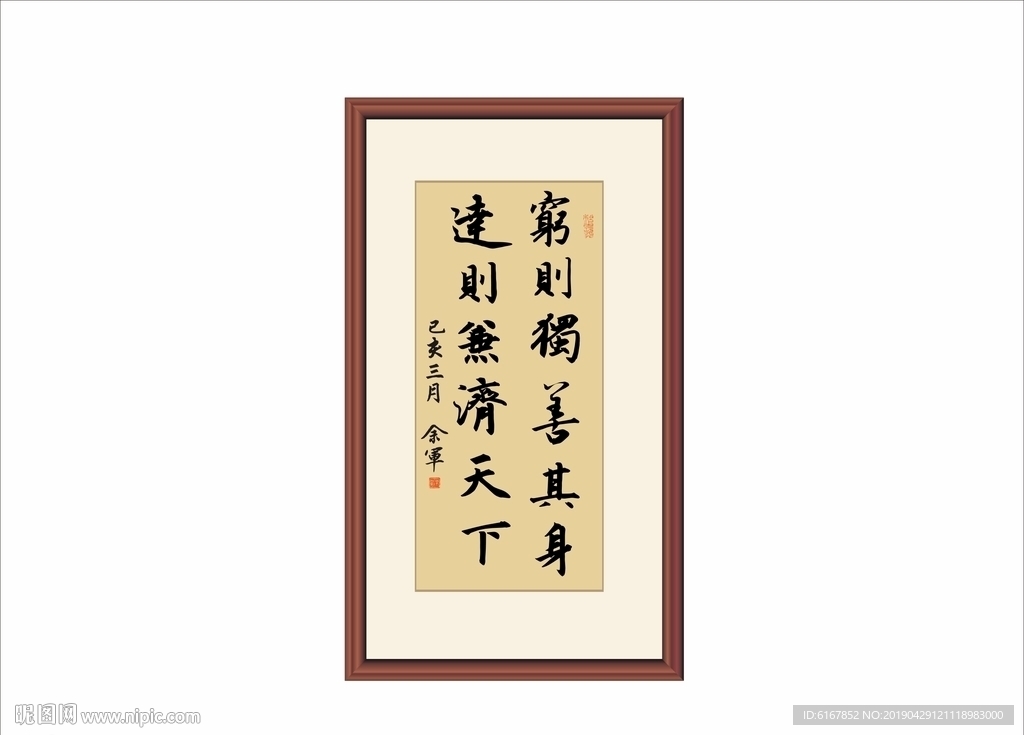 窮則獨善其身
達則兼濟天下
己亥三月 余軍
昵图网 www.nipic.com
ID:6167852 NO:20190429121118983000